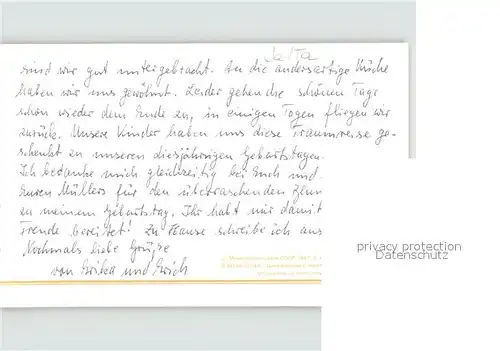 Jalta
sind wir gut untergebracht. An die andersartige Küche
haben wir uns gewöhnt. Leider gehen die schönen Tage
schon wieder dem Ende zu, in einigen Tagen fliegen wir
zurück. Unsere Kinder haben uns diese Traumreise ge-
schenkt zu unseren diesjährigen Geburtstagen.
Ich bedanke mich gleichzeitig bei Euch und
Euren Müllers für den überraschenden
zu meinem Geburtstag. Ihr habt mir damit
Freude bereitet! Zu Hause schreibe ich aus
Nochmals liebe Grüße
von Erika und Erich
privacy protection
Datenschutz